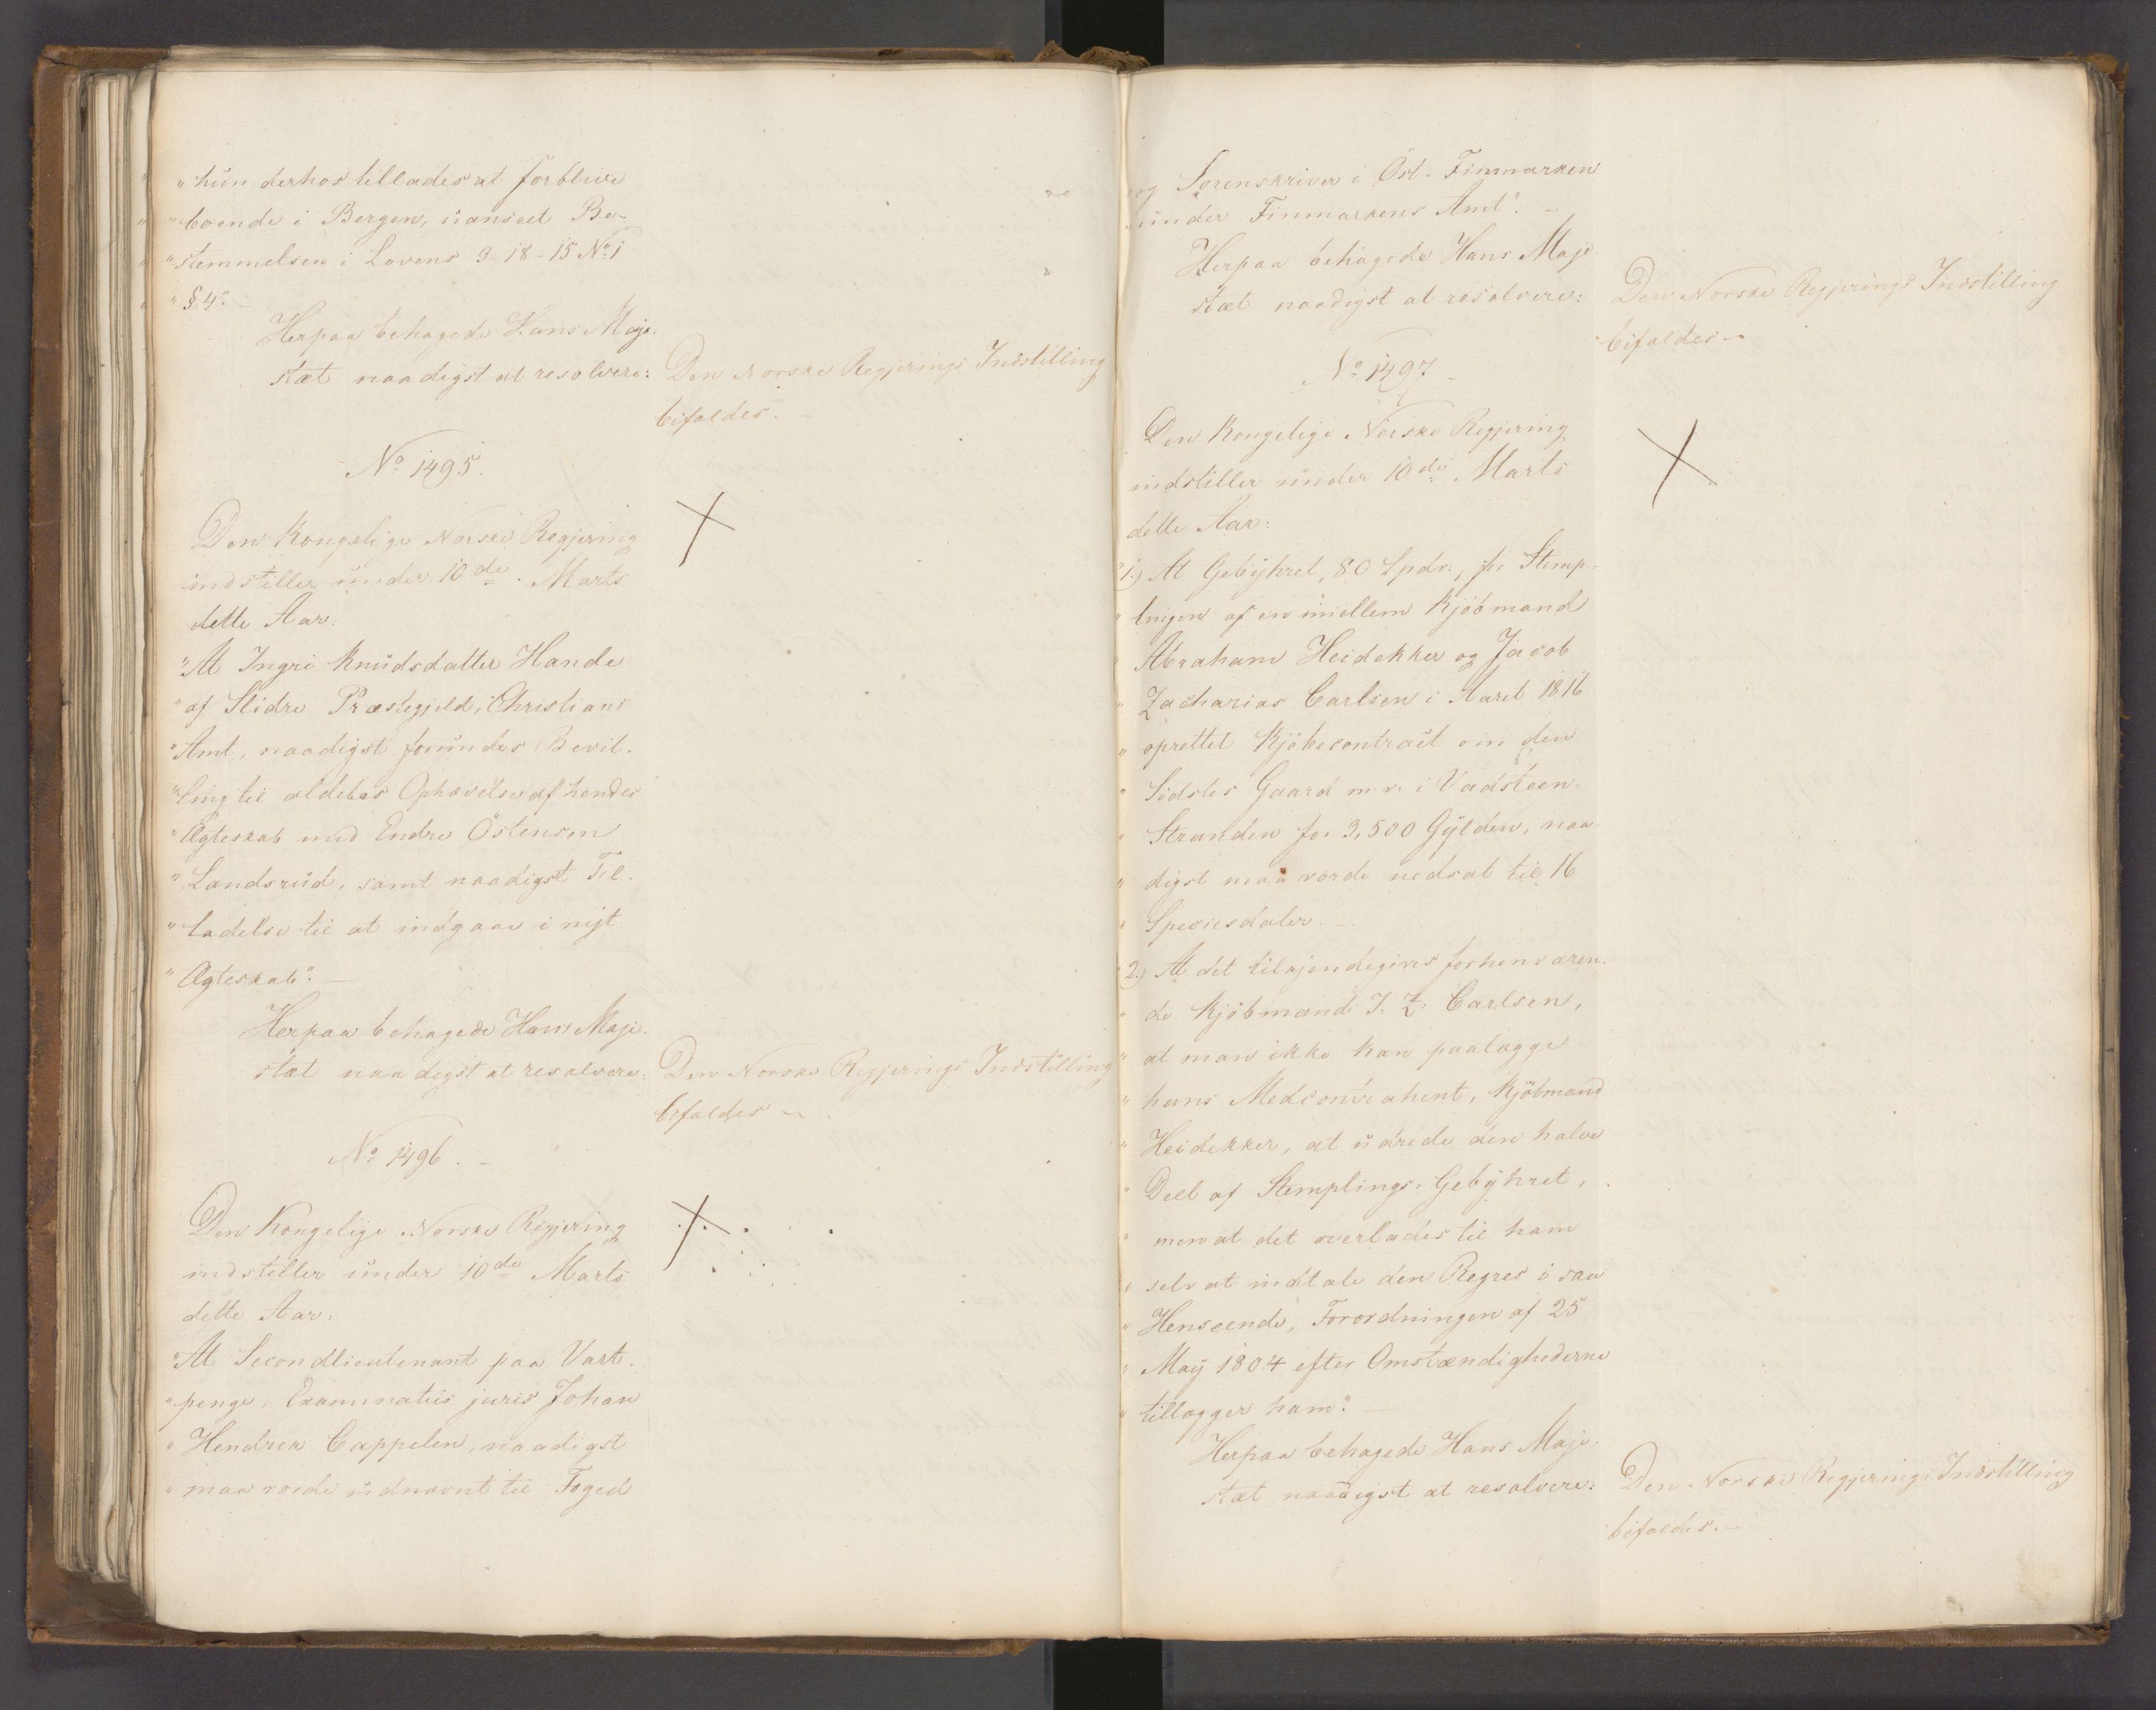 "hun derhos tillades at forblive
"boende i Bergen, uanseet Be-
"stemmelsen i Lovens 3-18-15 No 1
"§.4". -
Herpaa behagede Hans Maje-
stæt naadigst at resolvere:
Den Norske Regjerings Indstilling
bifaldes. -
No 1495.
Den Kongelige Norske Regjering
indstiller under 10de Marts
dette Aar.
"At Ingri Knudsdatter Hande
"af Slidre Præstegjeld, Christians
"Amt, naadigst forundes Bevil-
"ling til aldeles Ophævelse af hendes
"Ægteskab med Endre Östensen
"Landsrud, samt naadigst Til-
"ladelse til at indgaae i nyt
"Ægteskab". -
Herpaa behagede Hans Maje-
stæt naadigst at resolvere:
Den Norske Regjerings Indstilling
bifaldes -
No 1496. -
Den Kongelige Norske Regjering
indstiller under 10de Marts
dette Aar.
"At Secondlieutenant paa Vart-
"penge, Examinatus juris Johan
"Hendrik Cappelen, naadigst
"maa vorde udnævnt til Foged
"og Sorenskriver i Öst-Finmarken
"under Finmarkens Amt". -
Herpaa behagede Hans Maje-
stæt naadigst at resolvere:
Den Norske Regjerings Indstilling
bifaldes -
No 1497 -
Den Kongelige Norske Regjering
indstiller under 10de Marts
dette Aar:
"1.) At Gebyhret, 80 Spdr., for Stemp-
"lingen af en imellem Kjöbmand
"Abraham Heidekker og Jacob
"Zacharias Carlsen i Aaret 1816
"oprettet Kjöbecontract om den
"Sidstes Gaard m. v. i Vadsteen-
"Stranden for 3,500 Gylden, naa-
"digst maa vorde nedsat til 16
"Speciesdaler. -
"2.) At det tilkjendegives forhenværen-
"de Kjöbmand J. Z. Carlsen,
"at man ikke kan paalægge
"hans Medcontrahent, Kjöbmand
"Heidekker, at udrede den halve
"Deel af Stemplings-Gebyhret,
"men at det overlades til ham
"selv at indtale den Regres i saa
"Henseende, Forordningen af 25
"May 1804 efter Omstændighederne
"tillægger ham". -
Herpaa behagede Hans Maje-
stæt naadigst at resolvere:
Den Norske Regjerings Indstilling
bifaldes. -